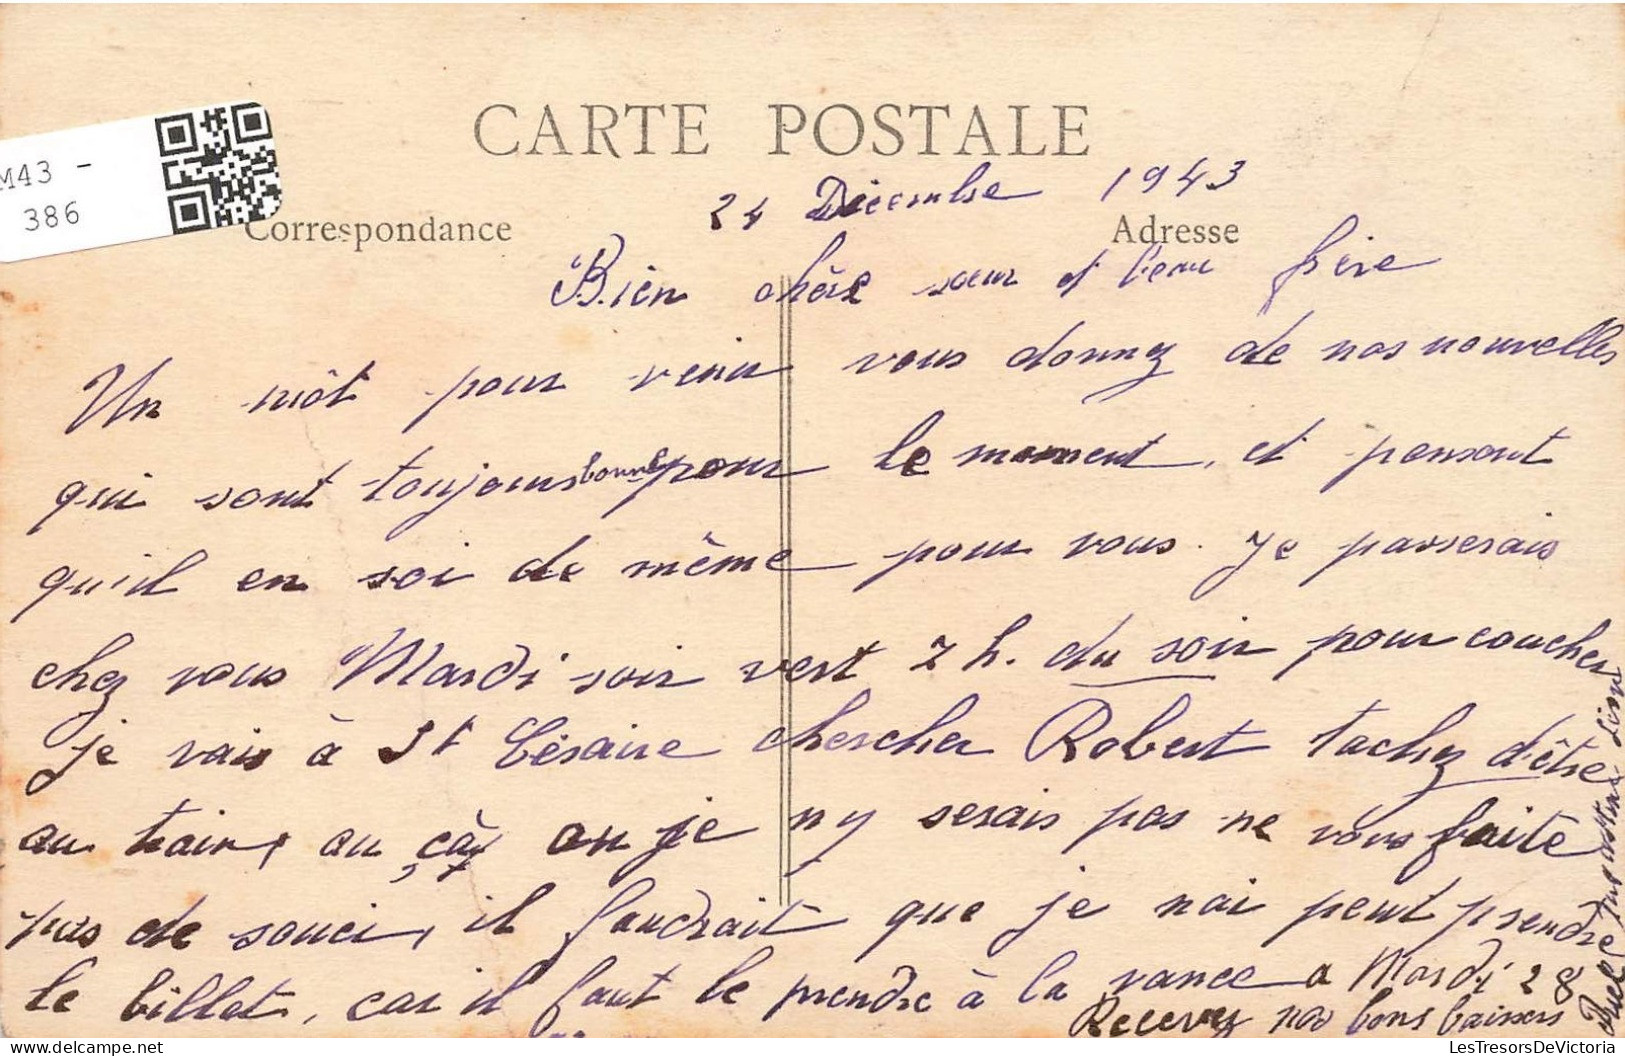 M43 -
386
CARTE POSTALE
Correspondance
Adresse
24 Décembre 1943
Bien chère sœur et beau frère
Un môt pour venir vous donnez de nos nouvelles
qui sont toujours bonne pour le moment, et pensont
qu'il en soi de même pour vous. Je passerais
chez vous Mardi soir vert 7 h. du soir pour coucher
je vais à St Césaire chercher Robert tachez d'être
au train, au cà, ou je n'y serais pas ne vous faité
pas de souci, il faudrait que je nai peut prendre
le billet, car il faut le prendre à la vance a Mardi 28
Recevez nos bons baisers
LesTresorsDeVictoria